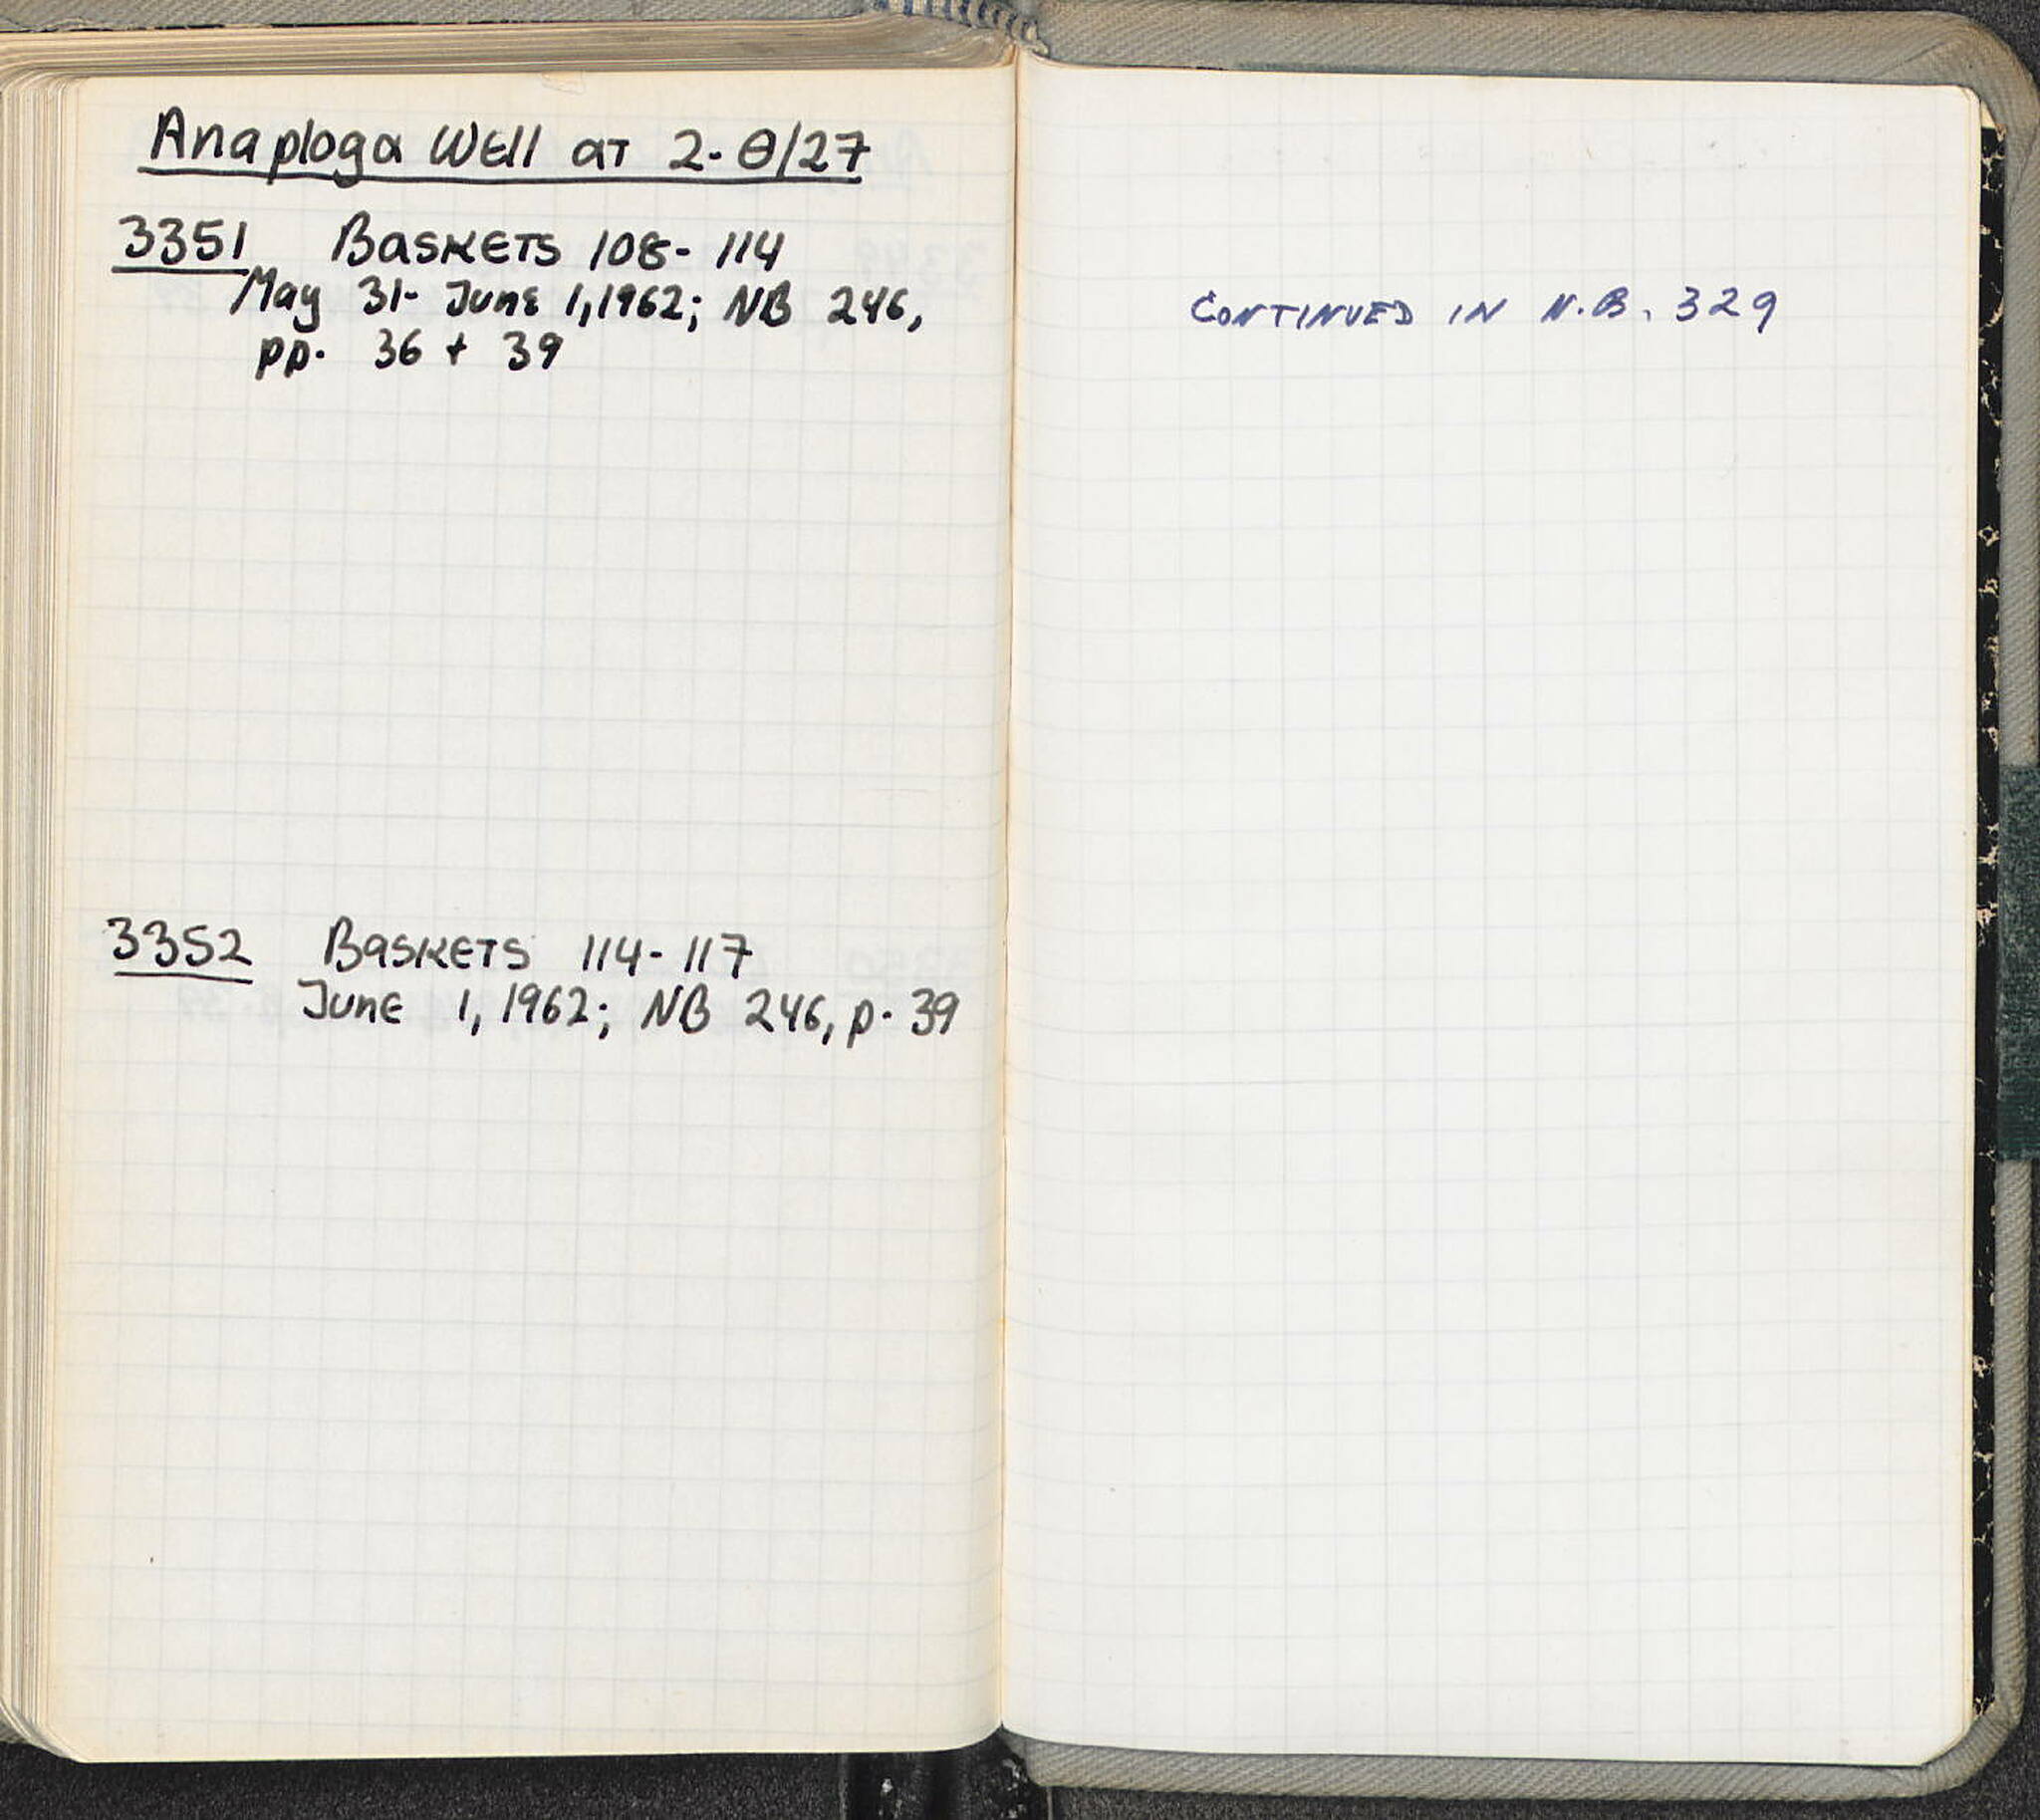 Anaploga Well at 2-Θ/27
3351 Baskets 108-114
May 31- June 1, 1962; NB 246,
pp. 36 + 39
3352 Baskets 114-117
June 1, 1962; NB 246, p. 39
CONTINUED IN N.B. 329